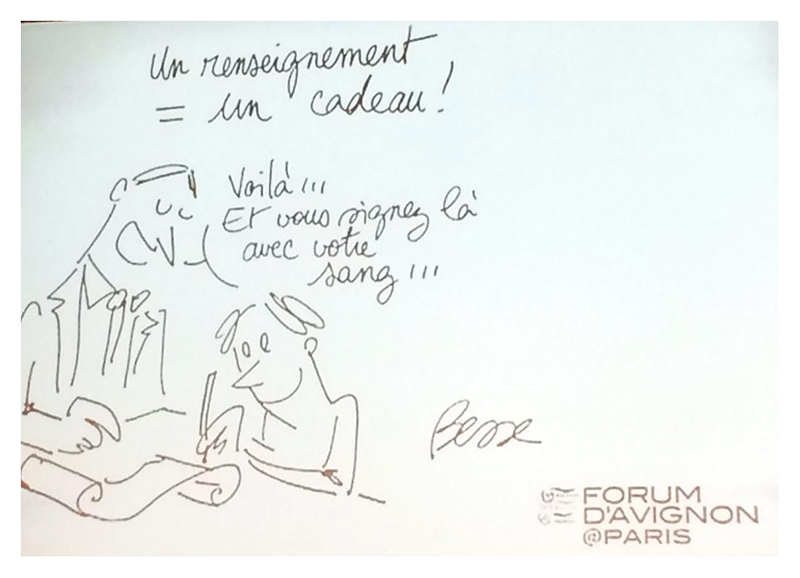 Un renseignement
= un cadeau !
Voilà !!!
Et vous signez là
avec votre
sang !!!
Besse
FORUM
D'AVIGNON
@PARIS